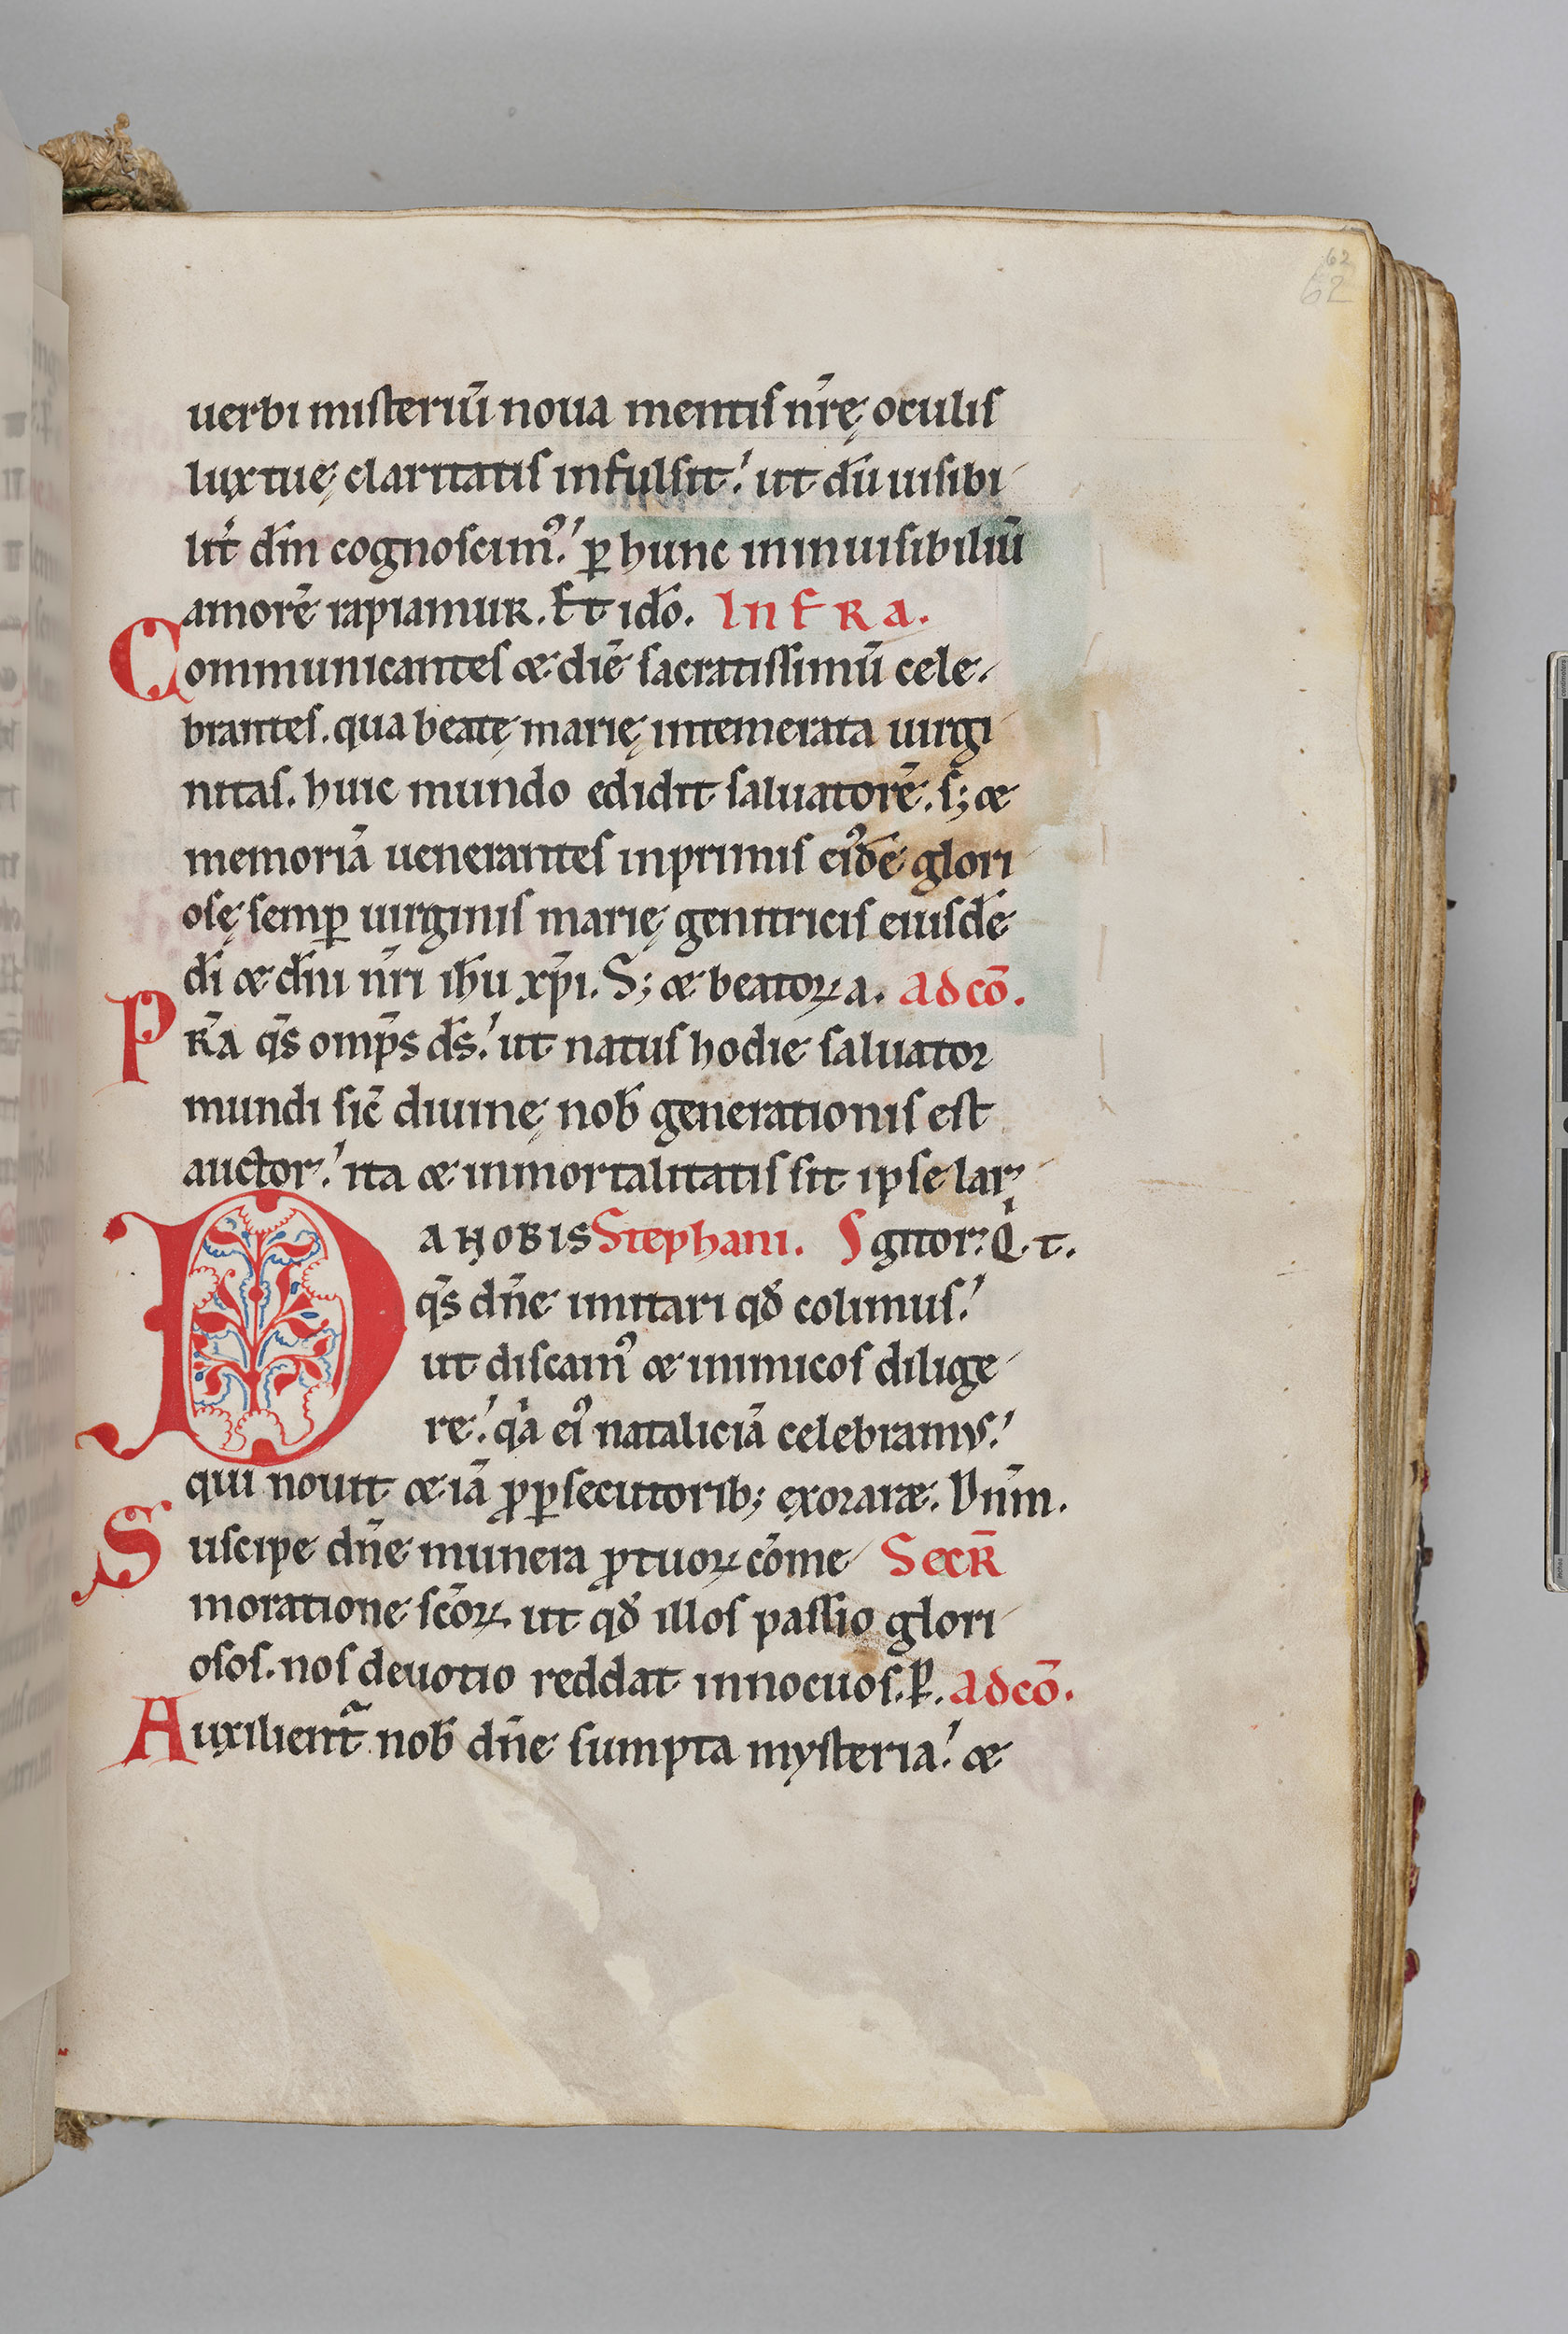 62
62
uerbi misteriū noua mentis nr̄ę oculis
lux tuę claritatis infulsit. ut dū uisibi
lit̄ dm̄ cognoscimꝰ. ꝑ hunc in inuisibiliū
amorē rapiamur. Et ido. Infra.
Communicantes & diē sacratissimū cele
brantes. qua beatę marię intemerata uirgi
nitas. huic mundo edidit saluatorē. s; &
memoriā uenerantes inprimis eiꝰdē glori
osę semꝑ uirginis marię genitricis eiusdē
di & dn̄i nr̄i ihu xp̄i. S; & beatoꝝ a. ad cō.
Pr̄a qs̄ omp̄s ds̄. ut natus hodie saluator
mundi sic̄ diuinę nob̄ generationis est
auctor. ita & inmortalitatis sit ipse lar
Da nobis Stephani. Sgitor. Q. t.
qs̄ dn̄e imitari qđ colimus.
ut discamꝰ & inimicos dilige
re. qa eiꝰ nataliciā celebramus.
qui nouit & iā ꝓ ꝑsecutorib; exorar&. Dnm̄.
Suscipe dn̄e munera ꝓ tuoꝝ cōme Secr̄
moratione scōꝝ. ut qđ illos passio glori
osos. nos deuotio reddat innocuos. P. ad cō.
Auxilient̄ nob̄ dn̄e sumpta mysteria. &